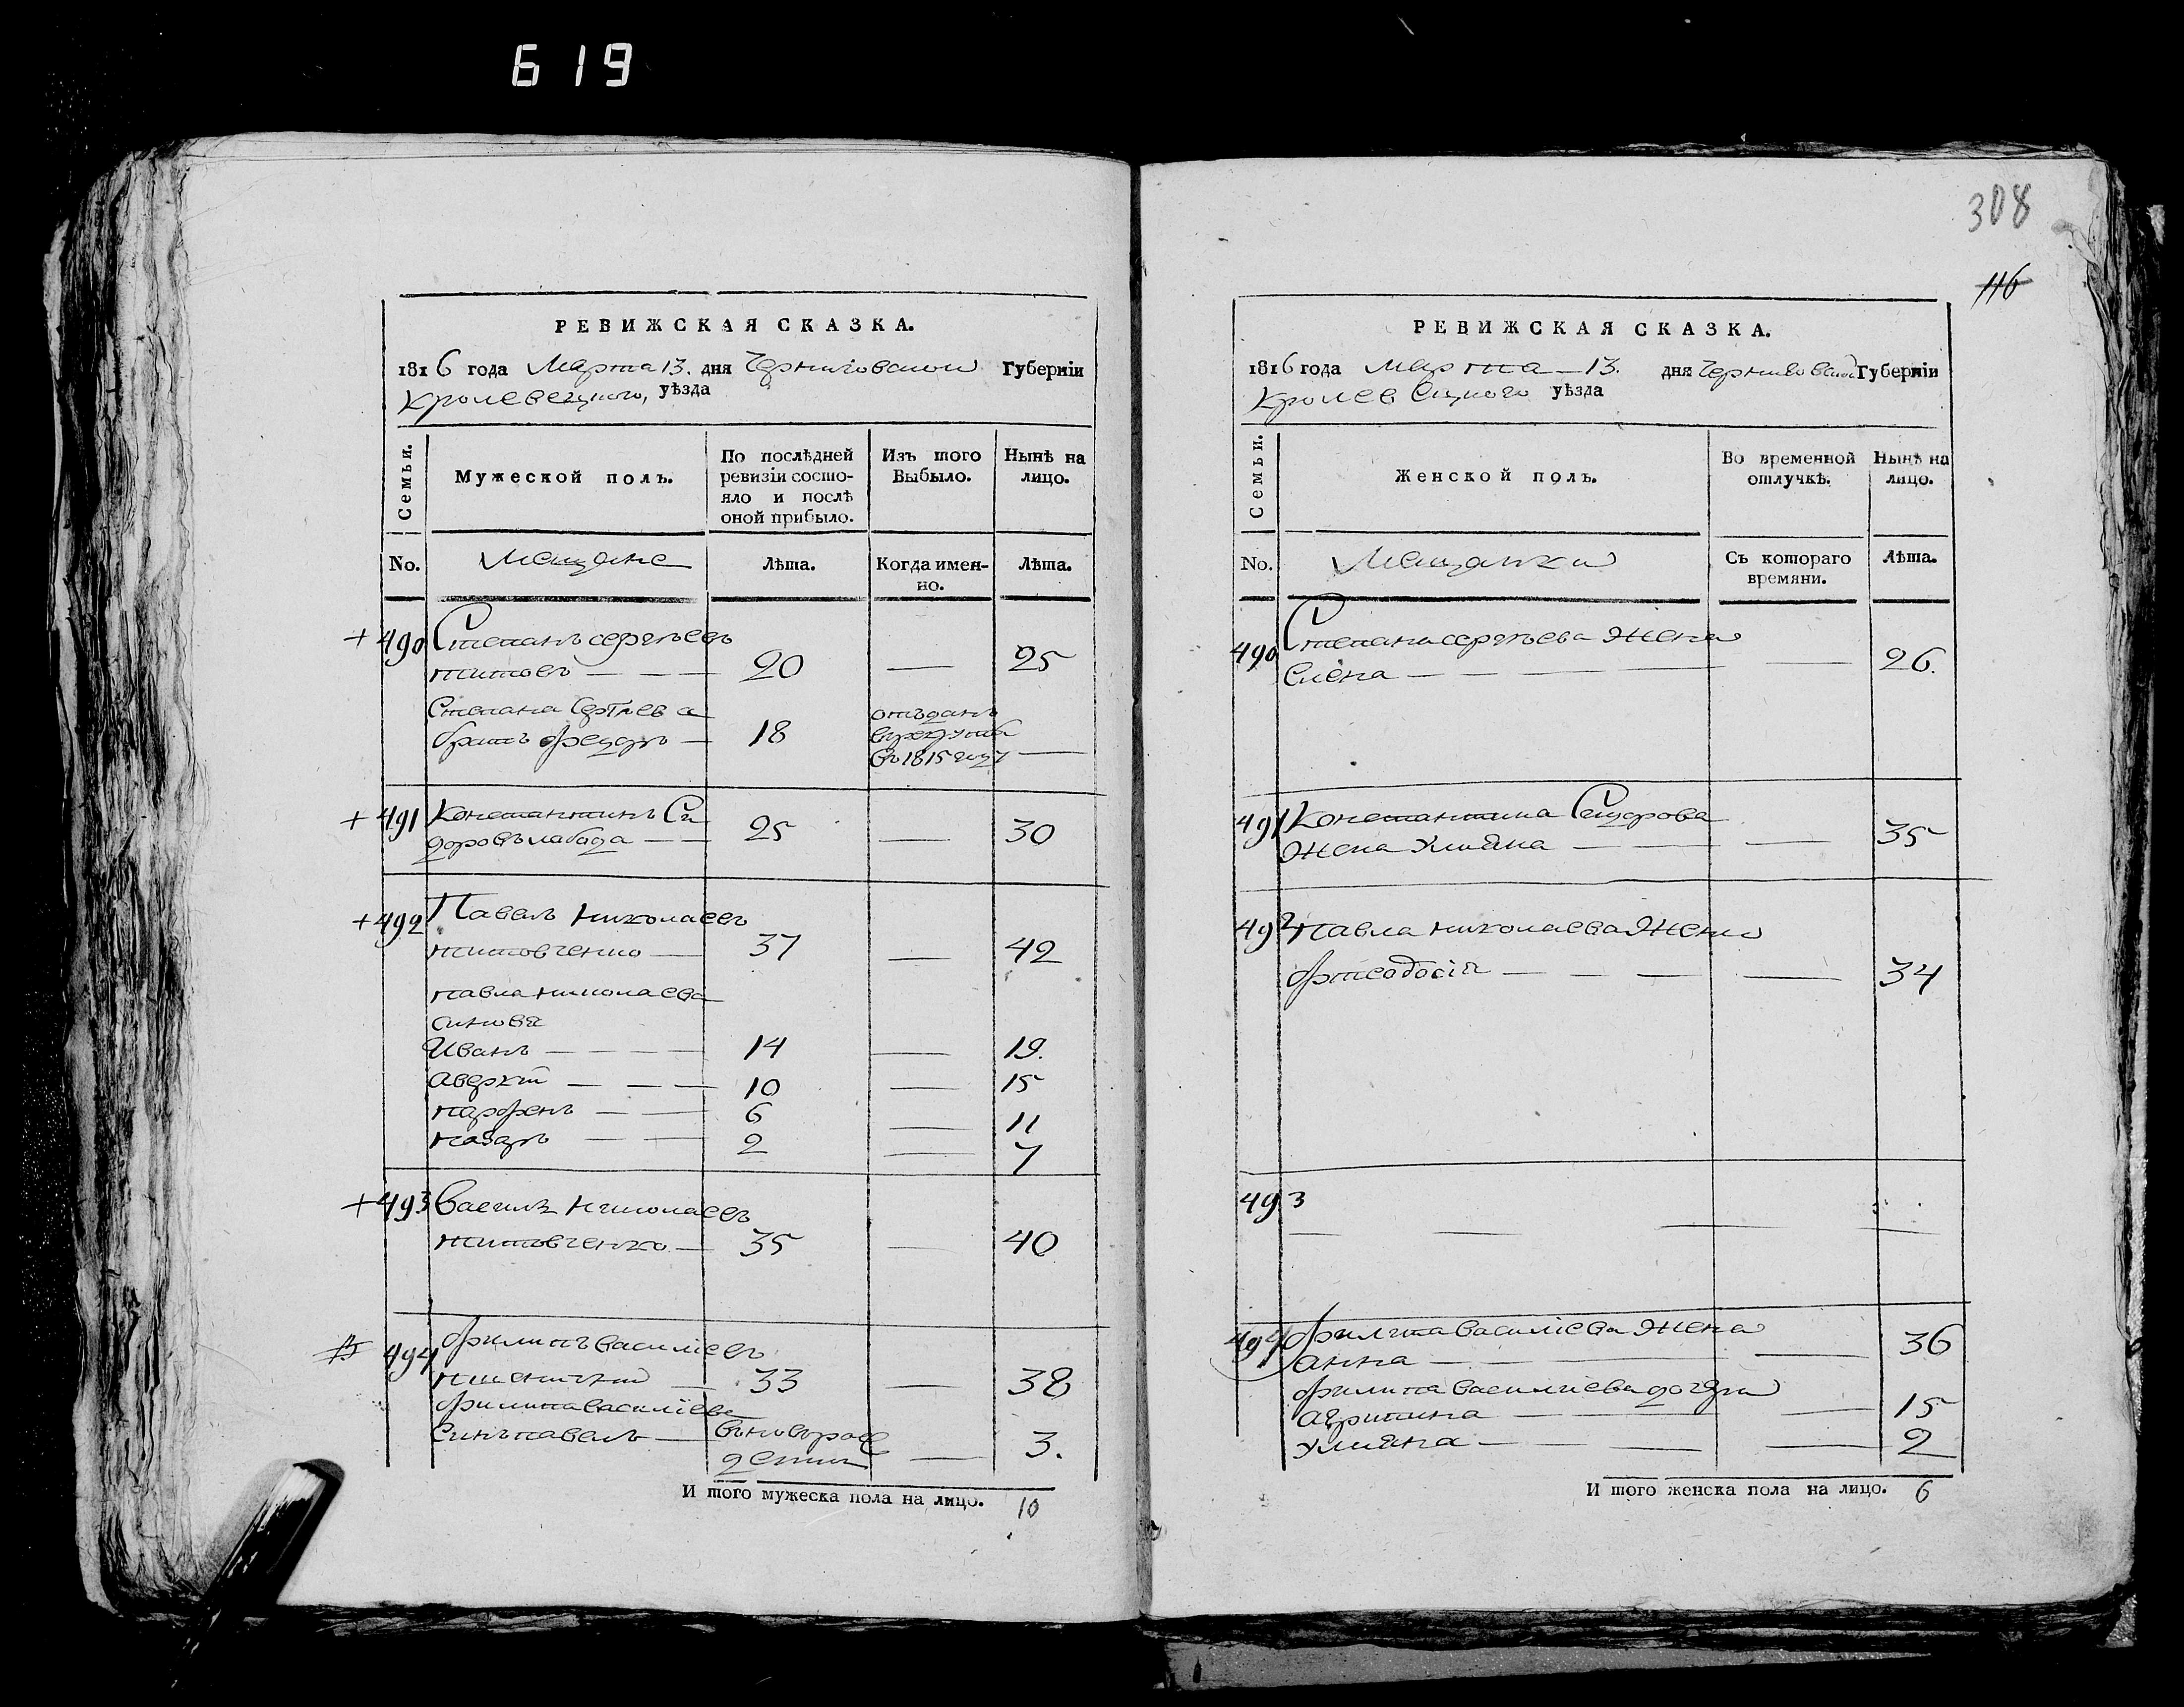 619
РЕВИЖСКАЯ СКАЗКА.
1816 года Марта 13. дня Черниговской Губерніи
Кролевецкого, уѣзда
Семьи.
Мужеской полъ.
По послѣдней ревизіи состояло и послѣ оной прибыло.
Изъ того Выбыло.
Нынѣ на лицо.
No.
Мещане
Лѣта.
Когда именно.
Лѣта.
+ 490 Степанъ сергѣевъ
титовъ — — — 20 — 25
Степана Сергѣева
братъ феодоръ — 18 отъданъ
врекруты
въ 1815 году —
+ 491 Константинъ Си
доровъ лабода — — 25 — 30
+ 492 Павелъ николаевъ
титовченко — 37 — 42
павла николаева
синовя
Иванъ — — — — 14 — 19.
аверкій — — — 10 — 15
парфенъ — — 6 — 11
назаръ — — 2 — 7
+ 493 Василъ николаевъ
титовченко — 35 — 40
494 филипъ василіевъ
— 33 — 38
филипа василіева
синъ павелъ — въноворож
денны — 3.
И того мужеска пола на лицо. 10
308
116
РЕВИЖСКАЯ СКАЗКА.
1816 года Марта — 13. дня Черниговской Губерніи
Кролевецкого уѣзда
Семьи.
Женской полъ.
Во временной отлучкѣ.
Нынѣ на лицо.
No.
Мещанки
Съ котораго времяни.
Лѣта.
490 Степана сергѣева жена
Елена — — — — — 26.
491 Константина Сидорова
жена улияна — — — 35
492 павла николаева жена
фтеодосія — — — — 34
493
— — — —
494 филипа василіева жена
анна — — — — 36
филипа василиева дочери
агрипина — — — — 15
улияна — — — — 2
И того женска пола на лицо. 6